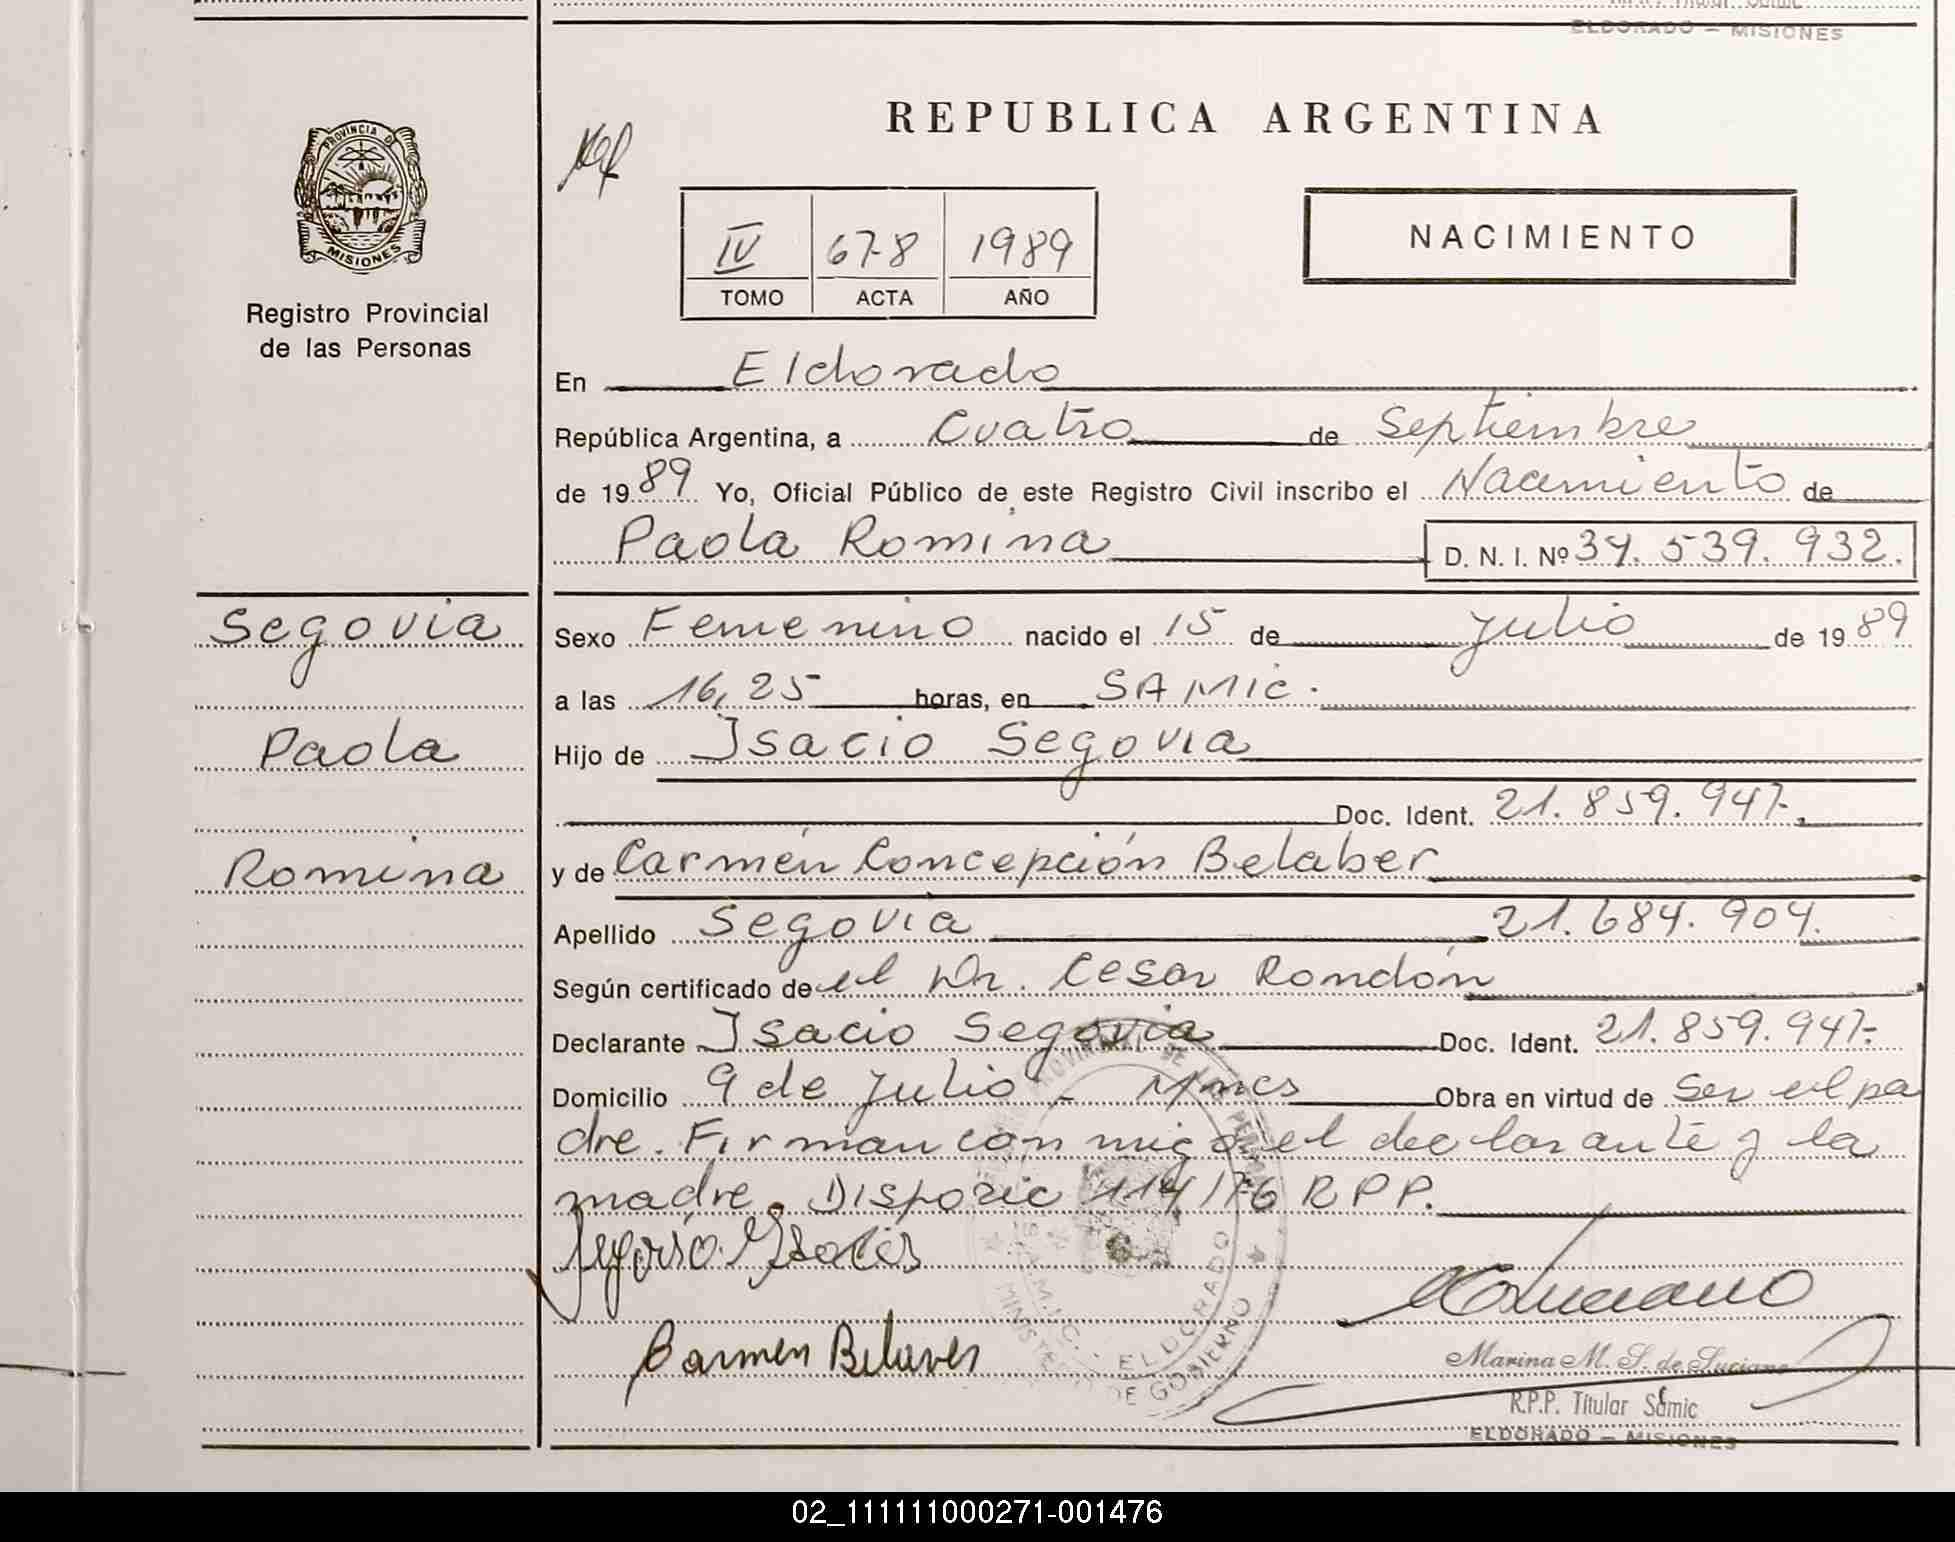 ELDORADO — MISIONES
PROVINCIA DE
MISIONES
Registro Provincial
de las Personas
REPUBLICA ARGENTINA
IV 678 1989
TOMO ACTA AÑO
NACIMIENTO
En Eldorado
República Argentina, a Cuatro de Septiembre
de 1989 Yo, Oficial Público de este Registro Civil inscribo el Nacimiento de
Paola Romina D. N. I. Nº 34.539.932.
Segovia
Paola
Romina
Sexo Femenino nacido el 15 de Julio de 1989
a las 16,25 horas, en SAMIC.
Hijo de Isacio Segovia
Doc. Ident. 21.859.947.
y de Carmén Concepción Belaber
Apellido Segovia 21.684.904.
Según certificado de el Dr. Cesar Rondón
Declarante Isacio Segovia Doc. Ident. 21.859.947.
Domicilio 9 de Julio - Mnes Obra en virtud de ser el pa
dre. Firman con migo el declarante y la
madre. Disposic 114/76 R P P.
Carmen Belaver
S.A.M.I.C.
ELDORADO
MINISTERIO DE GOBIERNO
Marina M. S. de Luciano
R.P.P. Titular Samic
ELDORADO — MISIONES
02_111111000271-001476